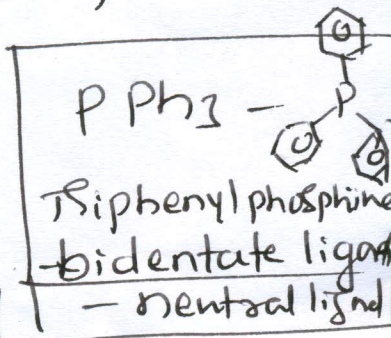 PPh3 - P
Triphenylphosphine
-bidentate ligan
- neutral lignd